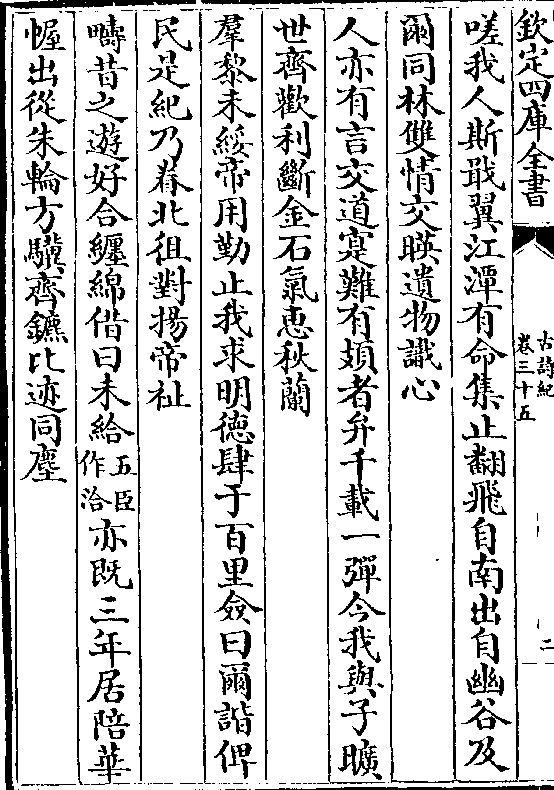 欽定四庫全書
古詩紀
卷三十五
二
嗟我人斯戢翼江潭有命集止翻飛自南出自幽谷及
爾同林雙情交暎遺物識心
人亦有言交道寔難有頍者弁千載一彈今我與子曠
世齊歡利斷金石氣惠秋蘭
羣黎未綏帝用勤止我求明徳肆于百里僉曰爾諧俾
民是紀乃眷北徂對揚帝祉
疇昔之遊好合纏綿借曰未給五臣作洽亦既三年居陪華
幄出從朱輪方驥齊鑣比迹同塵